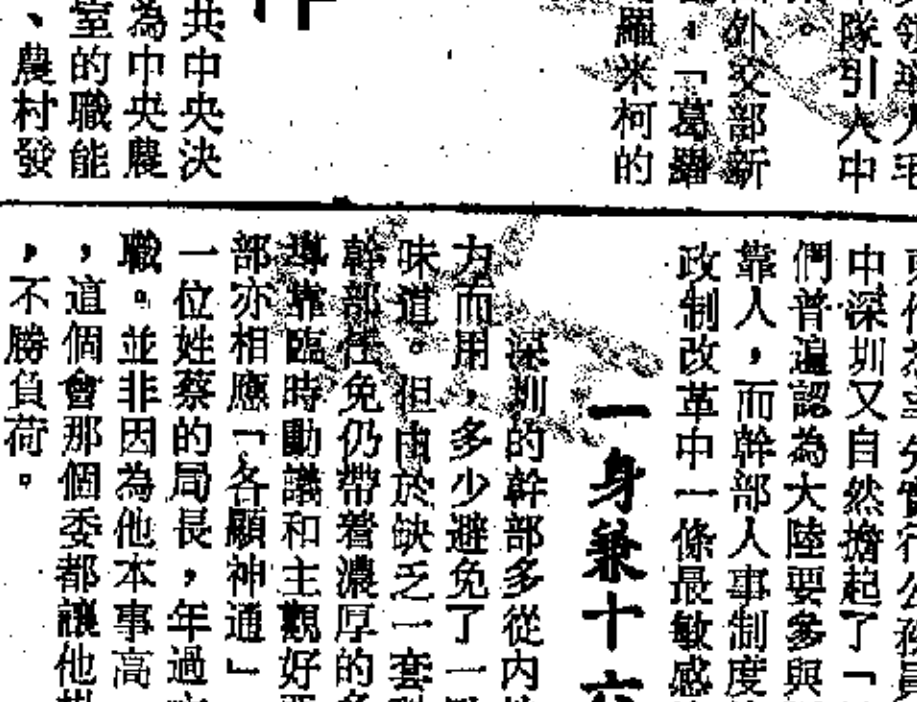 領導人
隊引入中
外交部新
，「葛羅
羅米柯的
共中央決
為中央農
室的職能
、農村發
中深圳又自然擔起了「
們普遍認為大陸要參與
靠人，而幹部人事制度
政制改革中一條最敏感
一身兼十六
深圳的幹部多從內
力而用，多少避免了一
味道。但由於缺乏一套
幹部任免仍帶着濃厚的
導靠臨時動議和主觀好
部亦相應「各顯神通」
一位姓蔡的局長，年過
職。並非因為他本事高
，這個會那個委都讓他
，不勝負荷。